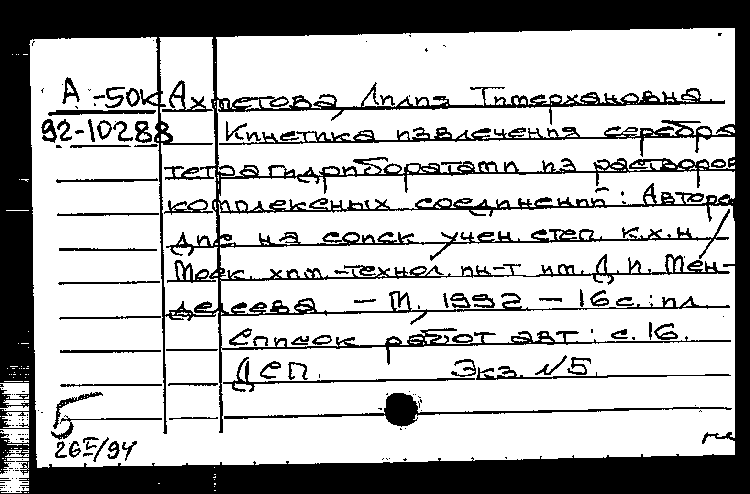 А-50к Ахметова, Лилия Тимерхановна.
92-10288 Кинетика извлечения серебра
тетрагидриборатами из растворов
комплексных соединений: Авторе
дис на соиск учен. степ. к.х.н
Моск. хим.-технол. ин-т им. Д. И. Мен-
делеева. - М., 1992 - 16 с.: ил
Список работ авт: с. 16.
ДСП. Экз. №5.
5
26I/94